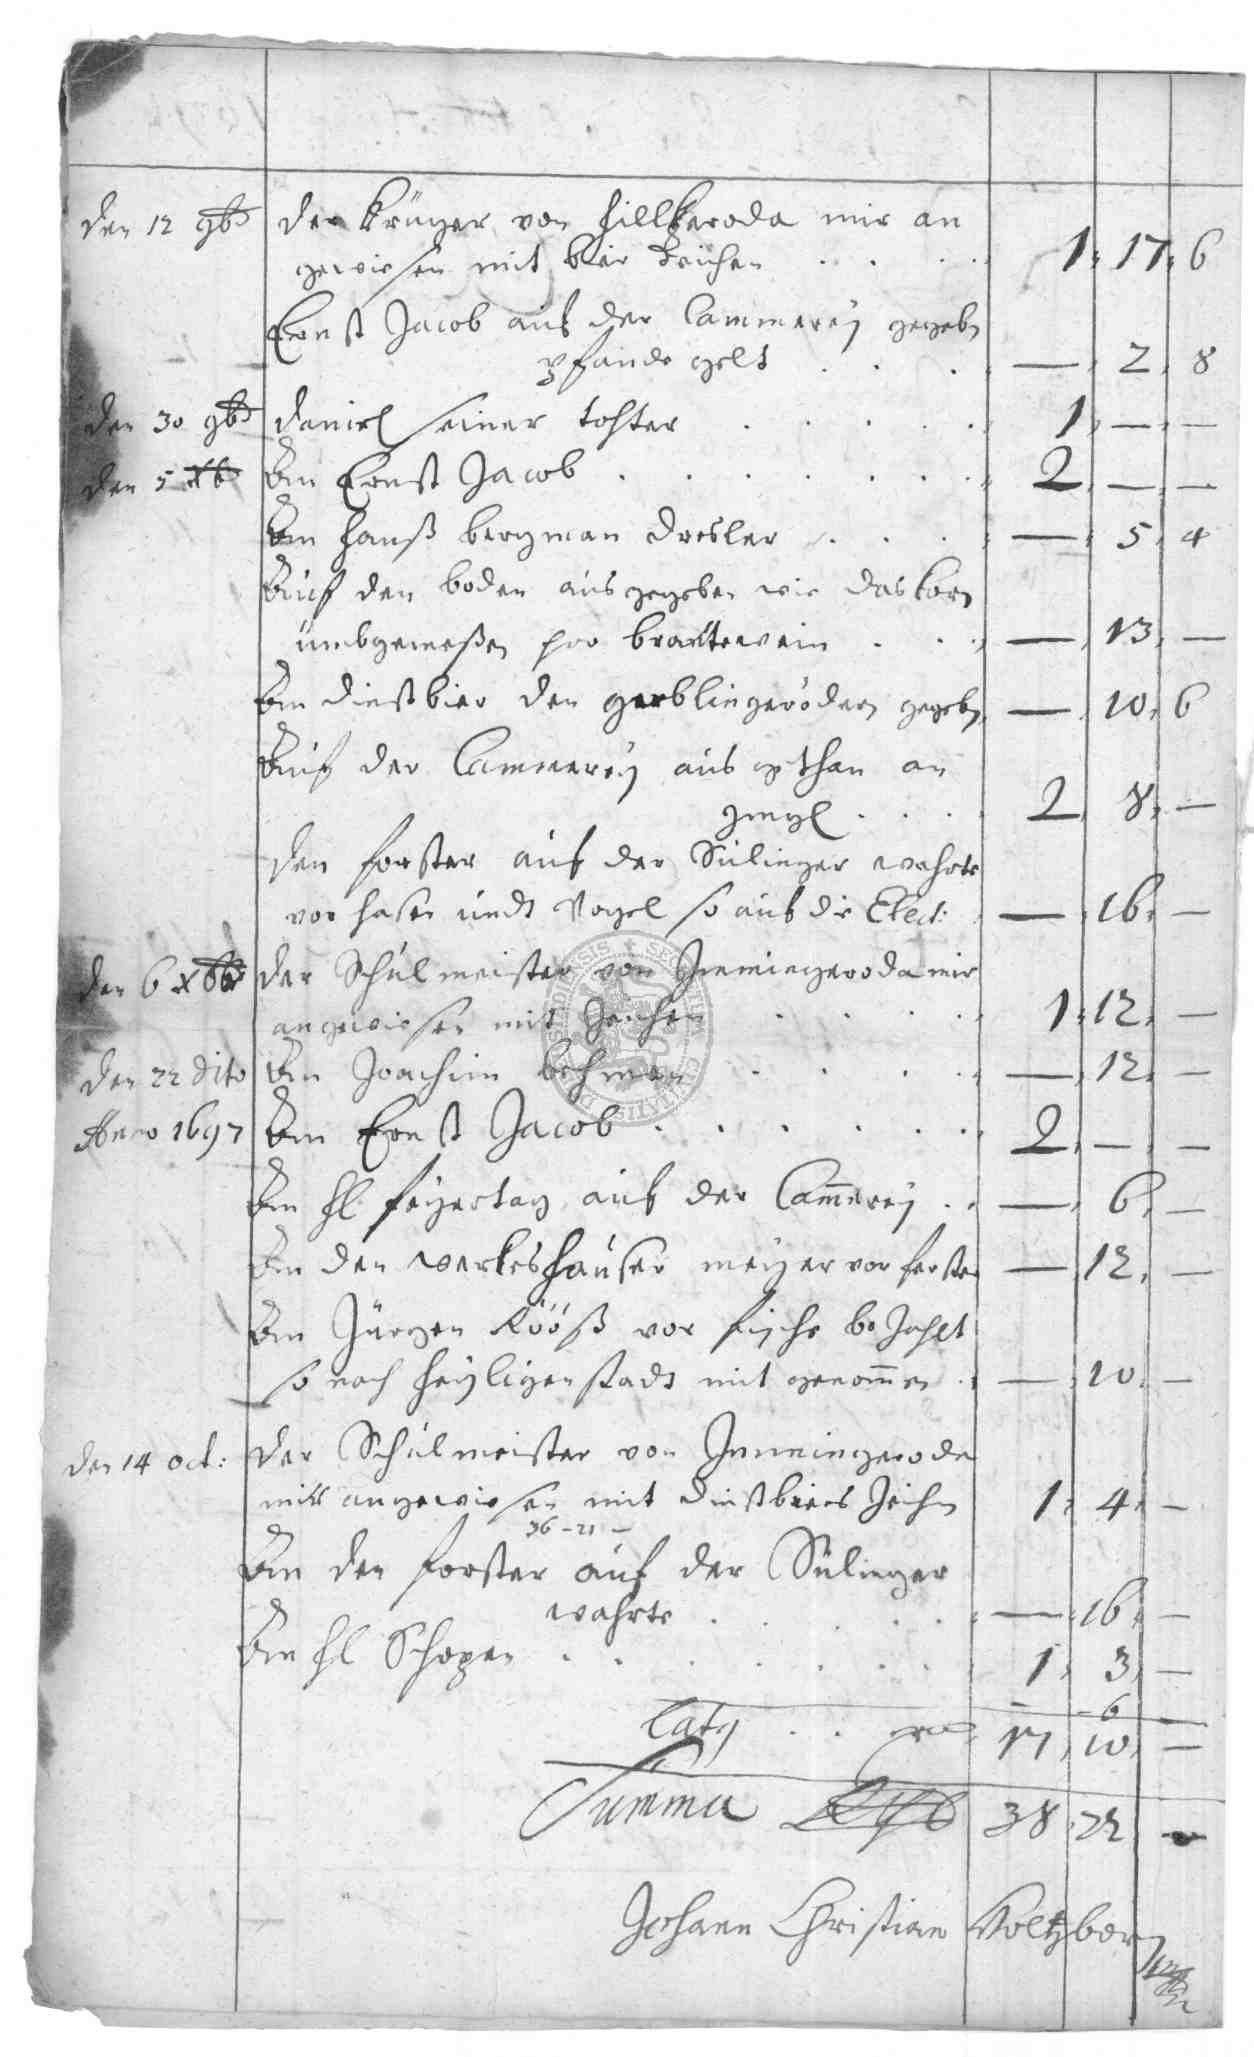 den 12 9b der Krüger von Hillkeroda mir an
gewiesen mit bier Zeichen . . . 1: 17: 6
Ernst Jacob auf der Cammereÿ gegebn
pfande gelt . . . — 2, 8
den 30 9b daniel seiner tohter . . . . . 1, — —
den 5 Xb Em Ernst Jacob . . . . . . . 2, — —
Em Hanß bergman dresler . . . — 5, 4
Auf den boden ausgegeben wie das korn
umbgemeßen pro brantewein . . . — 13, —
Em dinstbier den gerblingerödern gegebn — 10, 6
Auf der Cammereÿ aus gethan an
. . . . 2, 8, —
den forster auf der Sülinger wahrte
vor hasen undt Vogel so auf die Elect: — 16, —
den 6 Xbb der Schulmeister von Immingeroda mir
angewiesen mit Zeichen . . . . . 1: 12, —
den 22 dito Em Joachim . . . . . — 12, —
Anno 1697 Em Ernst Jacob . . . . . . . 2, — —
Em Hl feÿertag auf der Cam̄ereÿ . . — 6, —
Em den werkshäuser meÿer vor — 12, —
Em Jürgen Rööß vor fische be Zahlt
so nach Heÿligenstadt mit genom̄en . . — 10, —
den 14 oct: der Schulmeister von Immingerode
mir angewiesen mit dinstbiers Zeichen 1: 4, —
36 – 21 –
Em den forster auf der Sülinger
wahrte . . . . . . — 16, —
Em Hl Schopen . . . . . . . 1, 3, —
– 6 –
Latg . . 17, 10, —
Summa 38, 22, —
Johann Christian Voltzber